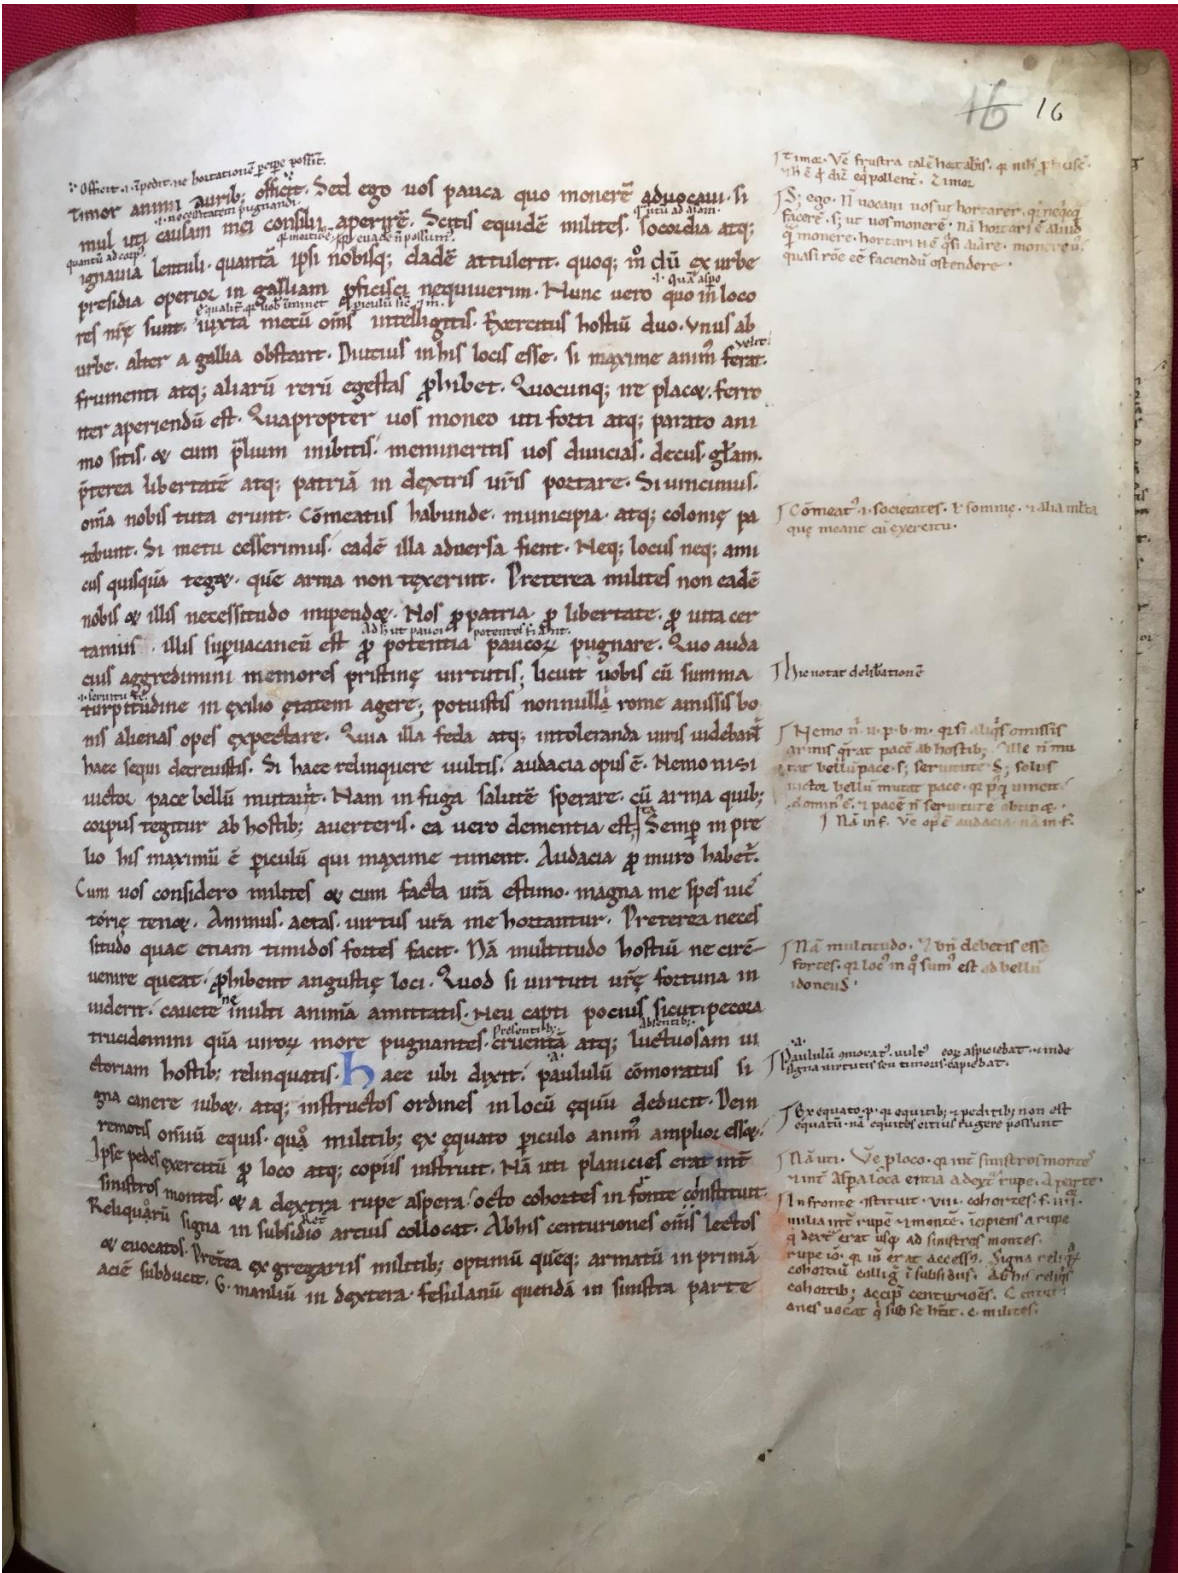 16 16
·i· īpedit· ne hortationē ꝑcipe possit·
Timor animi aurib; officit· Sed ego uos pauca quo monerē aduocaui· si
·i· necessitatem pugnandi
mul uti causam mei consilii aperirē· Scitis equidē milites· socordia atq;
quantū ad corp⁹
ignauia lentuli· quantā ipsi nobisq; cladē attulerit· quoq; m̊ dū ex urbe
presidia operior in galliam ꝓficisci nequiuerim· Nunc uero quo in loco
res nr̄ę sunt· iuxta mecū om̄s intelligitis· Exercitus hostiū duo· Vnus ab
urbe· alter a gallia obstant· Diutius in his locis esse· si maxime anim⁹ ferat·
frumenti atq; aliarū rerū egestas ꝓhibet· Quocunq; ire placet· ferro
iter aperiendū est· Quapropter uos moneo uti forti atq; parato ani
mo sitis· et cum p̄lium inibitis· memineritis uos diuicias· decus· gl̄am·
p̄terea libertatē atq; patriā in dextris ur̄is portare· Si uincimus·
om̄a nobis tuta erunt· Cōmeatus habunde· municipia· atq; colonię pa
tebunt· Si metu cesserimus· eadē illa aduersa fient· Neq; locus neq; ami
cus quisquā teget· quē arma non texerint· Preterea milites non eadē
nobis et illis necessitudo impendet· Nos ꝓ patria ꝓ libertate· ꝓ uita cer
tamus· illis suꝑuacaneū est ꝓ potentia paucoꝝ pugnare· Quo auda
cius aggredimini memores pristinę uirtutis· licuit uobis cū summa
·i· seruitute
turpitudine in exilio ętatem agere; potuistis nonnulli rome amissis bo
nis alienas opes expectare· Quia illa feda atq; intoleranda uiris uidebant̄
haec sequi decreuistis· Si haec relinquere uultis· audacia opus ē· Nemo nisi
uictor pace bellū mutauit· Nam in fuga salutē sperare· cū arma quib;
corpus tegitur ab hostib; auerteris· ea uero dementia est· Semꝑ in pre
lio his maximū ē ꝑiculū qui maxime timent· Audacia ꝓ muro habet̄·
Cum uos considero milites et cum facta ur̄a estimo· magna me spes uic
torię tenet· Animus· aetas· uirtus ur̄a me hortantur· Preterea neces
situdo quae etiam timidos fortes facit· Nā multitudo hostiū ne circū
uenire queat· ꝓhibent angustię loci· Quod si uirtuti ur̄ę fortuna in
uiderit· cauete ne inulti animā amittatis· Neu capti pocius sicuti pecora
Presentib; Absentib;
trucidemini quā uiroꝝ more pugnantes· cruentā atq; luctuosam ui
ctoriam hostib; relinquatis· Haec ubi dixit· paululū cōmoratus si
gna canere iubet· atq; instructos ordines in locū ęquū deducit· Dein
remotis omniū equis· quo militib; exęquato periculo anim⁹ amplior esset·
Ipse pedes exercitū ꝓ loco atq; copiis instruit· Nā uti planicies erat int̄
sinistros montes· et a dextra rupe aspera· octo cohortes in fronte constituit·
Reliquarū signa in subsidio artius collocat· Ab his centuriones om̄s lectos
et euocatos· Pretea ex gregariis militib; optimū quēq; armatū in primā
aciē subducit· G· manliū in dextera· fesulanū quendā in sinistra parte
S; ego· N̄ uocam uos ut hortarer·
facere· s; ut uos monerē· nā hortari ē aliud
quasi rōe eē faciendū ostendere·
Cōmeat⁹ ·i· societates· ł somnię· ⁊ alia multa
quę meant cū exercitu·
Hic notat delib̄ationē
Nemo n̄ u· p· b· m· q̄si aliq̄s omissis
armis q̄rat pacē ab hostib; ille n̄ mu
tat bellū pace· s; seruitute· S; solus
uictor bellū mutat pace·
Nā in f· Vē op⁹ ē audacia· nā in f·
Nā multitudo· ⁊ un̄ debetis esse
fortes· qr loc⁹ in q̊ sum⁹ est ad bellū
idoneus·
Paululū cmorat⁹· uult⁹ eoꝝ aspiciebat· ⁊ inde
signa uirtutis seu timoris capiebat·
Exequato· p· qr equitib; ⁊ peditib; non est
equatū· nā equites citius fugere possunt
Nā uti· Vē ꝓ loco· qr int̄ sinistros montes
⁊ int̄ aspa loca
In fronte ·stituit· VIII· cohortes·
milia int̄ rupē ⁊ montē· īcipiens a rupe
q̄ dext̄ erat usq; ad sinistros montes·
cohortiū collig̅ ī subsidiis· Ab his reliq̄s
cohortib; accip̄ centuriōes· Centuri
ones uocat q̄ sub se hn̄t· c· milites·